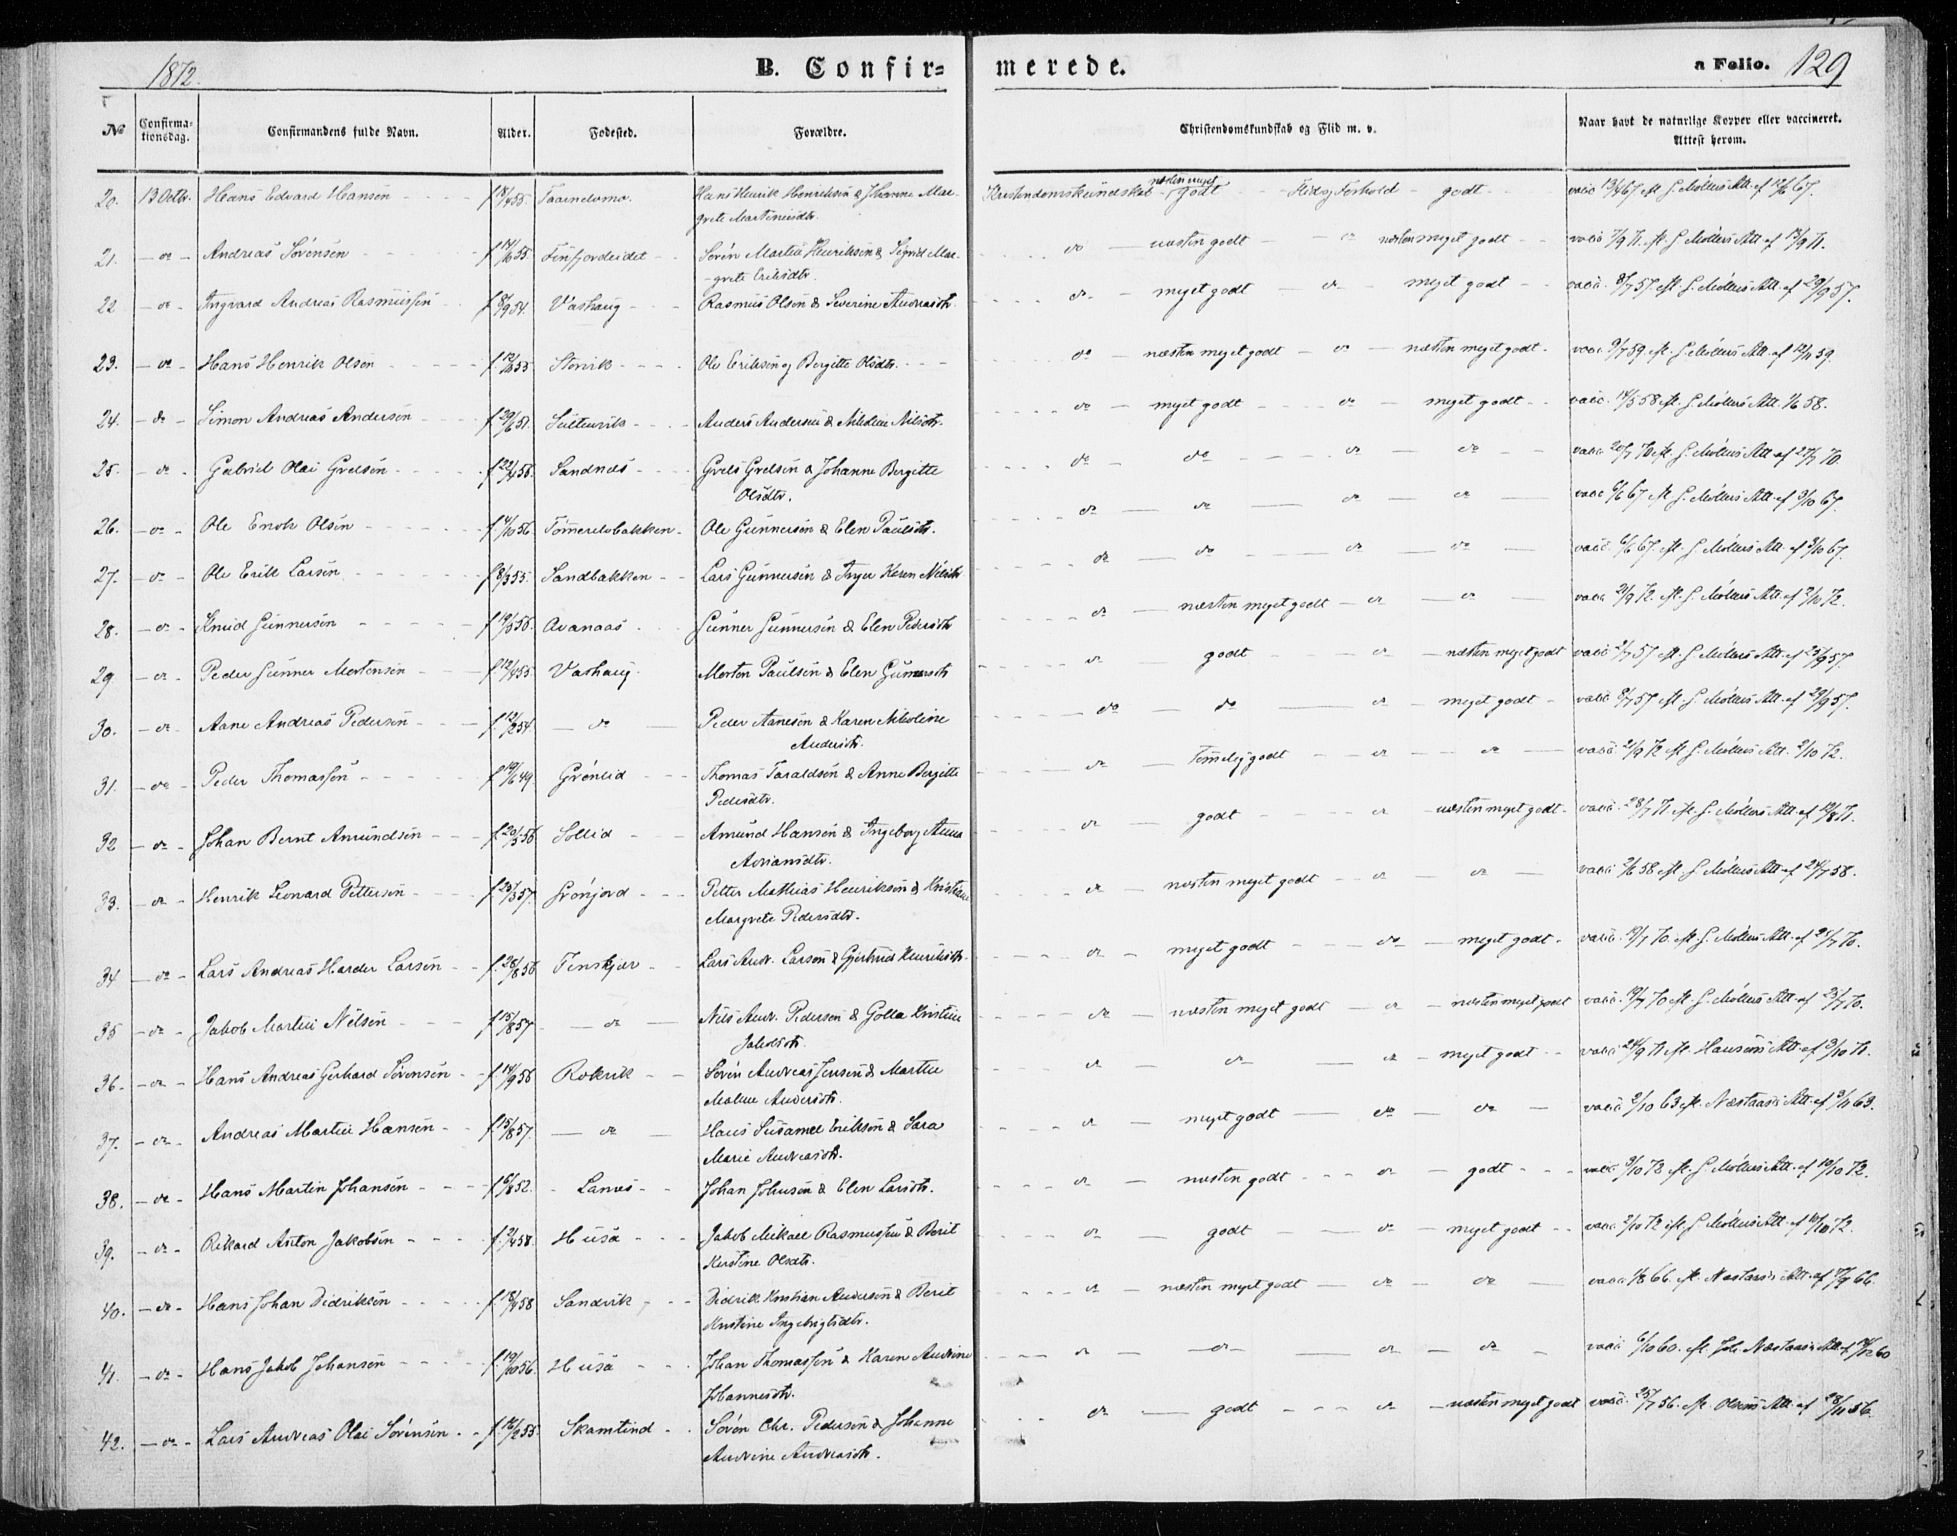 1872.
B. Confir=
merede.
a Folio. 129
No
Confirma-
tionsdag.
Confirmandens fulde Navn.
Alder.
Fødested.
Forældre.
Christendomskundskab og Flid m. v.
Naar havt de naturlige Kopper eller vaccineret.
Attest herom.
20. 13 Octbr. Hans Edvard Hansen f 18/4 55. Taarndomo. Hans Henrik Henriksen & Johanne Mar-
grete Martinusdtr.
Kristendomskundskab næsten meget godt Flid og Forhold godt vacc 13/6 67. eft. G Møllers Att. af 12/6 67.
21. - do - Andreas Sørensen f 14/6 55. Finfjordeidet Søren Martin Henriksen & Sigrid Mar-
grete Eriksdtr.
do næsten godt do næsten meget godt vacc 7/9 71. eft. G Møllers Att. af 13/9 71.
22 - do - Ingvard Andreas Rasmussen f 8/9 54. Vashaug Rasmus Olsen & Severine Andreasdtr.
do meget godt do meget godt vacc. 8/7 57. eft. G. Møllers Att. af 29/9 57.
23. - do - Hans Henrik Olsen f. 12/6 55 Storvik Ole Eriksen og Bergitte Olsdtr.
do næsten meget godt do næsten meget godt. vacc. 9/7 59. eft. G. Møllers Att. af 12/11 59.
24. - do - Simon Andreas Andersen f 29/6 57. Sultenvik Anders Andersen & Nikoline Nilsdtr.
do meget godt do meget godt vacc. 14/5 58 eft. G Møllers Att. 1/6 58.
25. - do - Gabriel Olai Grelsen f 22/4 58. Sandnes Grels Grelsen & Johanne Bergitte
Olsdtr.
do do do do vacc 20/7 70 eft. G. Møllers Att. af 27/7 70.
26. - do - Ole Enok Olsen f. 4/10 56. Tømmervbakken Ole Gunnersen & Elen Paulsdtr.
do do do do vacc 6/6 67. eft. G. Møllers Att. af 9/10 67.
27. - do - Ole Erik Larsen f 8/3 55. Sandbakken Lars Gunnersen & Inger Karen Nilsdtr
do do do do vacc. 6/6 67. eft. G Møllers Att. af 9/10 67.
28. - do - Knud Gunnersen f 19/5 58. Avanaas Gunner Gunnersen & Elen Pedersdtr
do næsten meget godt do do vacc. 2/9 72. eft. G. Møllers Att. af 2/10 72.
29. - do - Peder Gunner Mortensen f 12/4 55. Vashaug. Morten Paulsen & Elen Gunnersdtr
do godt do næsten meget godt vacc 8/7 57 eft. G. Møllers Att. af 25/9 57.
30. - do - Aane Andreas Pedersen f 12/2 54. do Peder Aanesen & Karen Nikoline
Andersdtr.
do do do meget godt vacc 8/7 57 eft. G. Møllers Att. af 29/9 57.
31. - do - Peder Thomassen f 19/6 49. Grønlid Thomas Taraldsen & Anne Bergitte
Pedersdtr.
do Temelig godt do do vacc. 2/9 72 eft G. Møllers Att. 2/10 72.
32 - do - Johan Bernt Amundsen f 20/5 56 Sollid Amund Hansen & Ingeborg Anna
Adriansdtr.
do godt do næsten meget godt vacc. 28/7 71. eft. G. Møllers Att. af 12/8 71.
33. - do - Henrik Leonard Pettersen f 25/3 57. Grønjord Petter Mathias Henriksen & Kristine
Margrete Pedersdtr.
do næsten meget godt do do vacc 2/6 58 eft. G Møllers Att. af 24/7 58.
34 - do - Lars Andreas Harder Larsen f. 28/8 56 Finskjær Lars Andr. Larsen & Gjertrud Henriksdtr.
do meget godt do meget godt. vacc. 19/7 70. eft. G. Møllers Att. af 21/7 70.
35 - do - Jakob Martin Nilsen f 15/8 57. do Nils Andr. Pedersen & Golla Kristine
Jakobsdtr.
do næsten meget godt do næsten meget godt vacc. 19/7 70 eft. G. Møllers Att. af 25/7 70.
36. - do - Hans Andreas Gerhard Sørensen f. 14/9 56 Rokvik Søren Andreas Jensen & Marthe
Malene Andersdtr.
do do do meget godt vacc 24/9 71 eft. Hansens Att. af 3/10 71.
37. - do - Andreas Martin Hansen f 15/8 57. do Hans Susamel Eriksen & Sara
Marie Andreasdtr.
do meget godt do do vacc 2/10 63 eft. Næstaas's Att. af 9/11 63.
38. - do - Hans Martin Johansen f 6/8 52. Lanes Johan Johnsen & Elen Larsdtr.
do næsten godt do godt vacc 9/10 72 eft. G Møllers Att. af 10/10 72.
39. - do - Rikard Anton Jakobsen f. 2/4 58. Husø Jakob Mikael Rasmussen & Berit
Kirstine Olsdtr.
do godt do meget godt vacc 2/10 72 eft. G Møllers Att. af 10/10 72.
40. - do - Hans Johan Didriksen f. 18/4 58 Sandvik Didrik Kristian Andersen & Berit
Kristine Ingebrigtsdtr.
do næsten meget godt do do vacc 1/8 66. eft. Næstaas's Att. af 7/9 66.
41. - do - Hans Jakob Johansen f. 19/10 56. Husø Johan Thomassen & Karen Andrine
Johannesdtr.
do do do do vacc 6/10 60. eft. Joh. Næstaas's Att. af /12 60
42. - do - Lars Andreas Olai Sørensen f 16/2 55. Skamtind Søren Chr. Pedersen & Johanne
Andrine Andreasdtr.
do godt do næsten meget godt vacc 25/7 56. eft. Olsens Att. af 28/11 56.